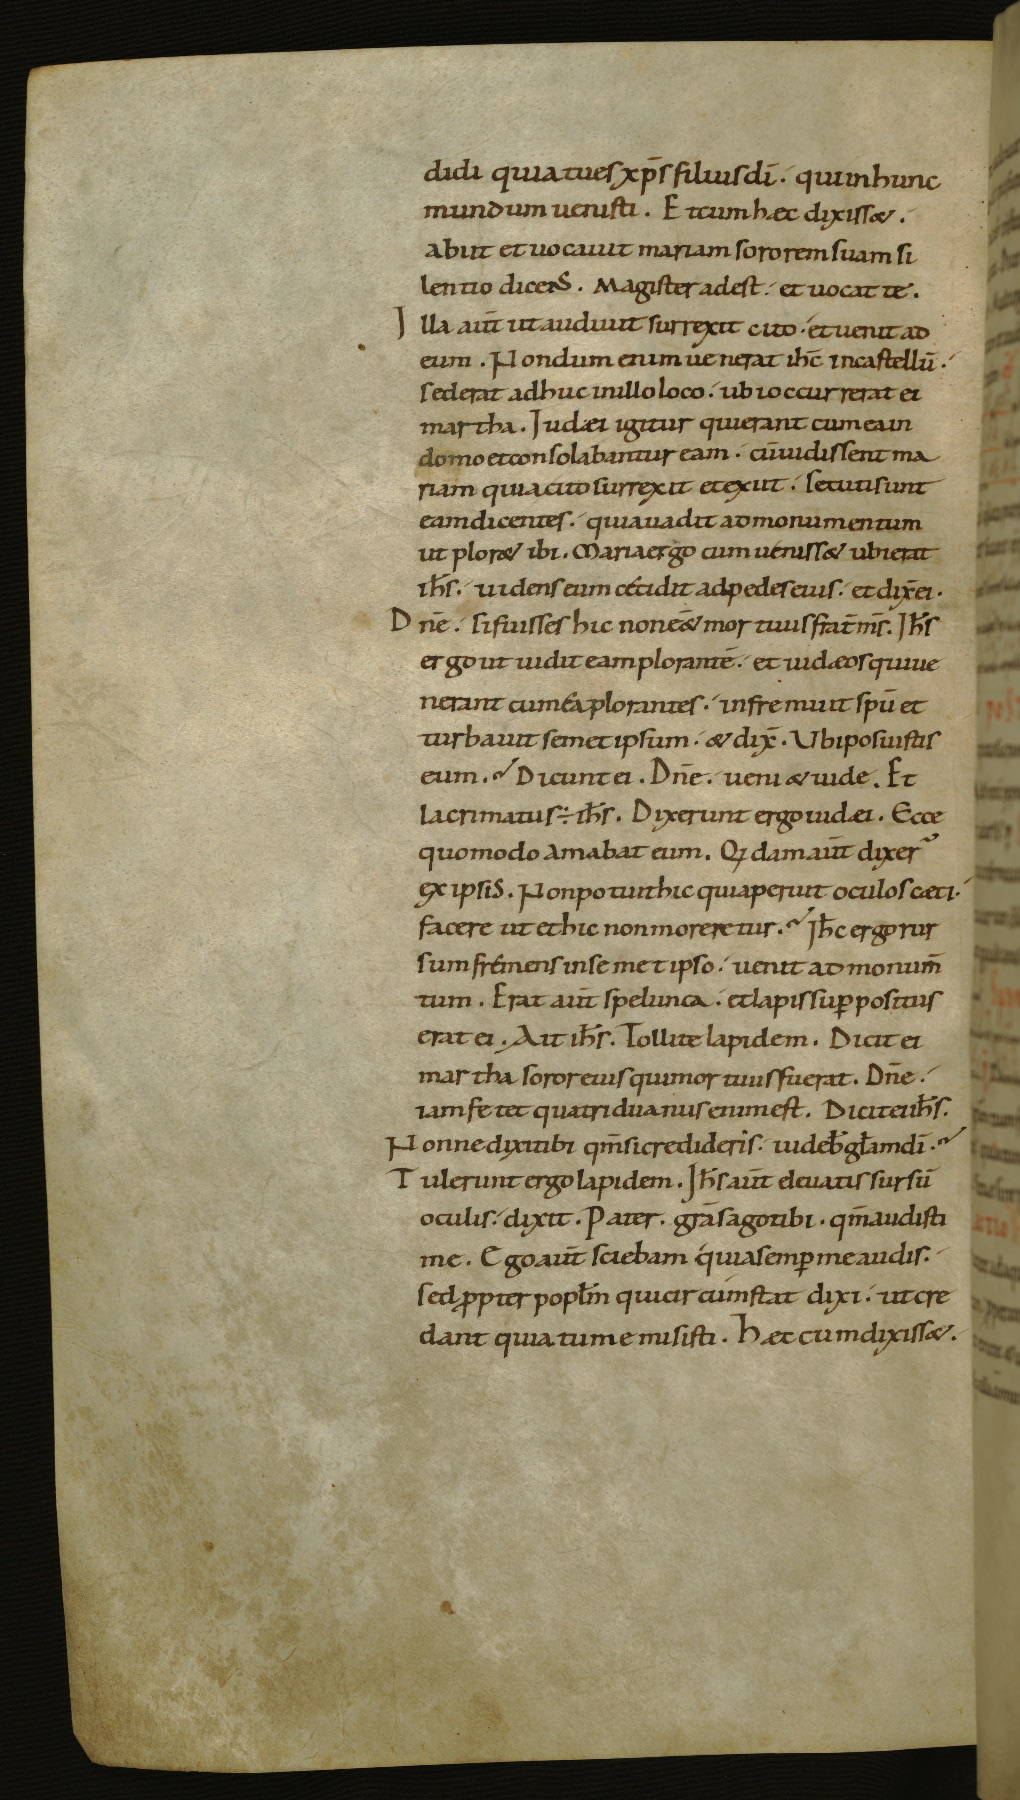 didi quia tu es xp̄s filius dī. qui in hunc
mundum uenisti. Et cum hæc dixiss&.
abiit et uocauit mariam sororem suam si
lentio dicens. Magister adest. et uocat te.
Illa aut̄ ut audiuit surrexit cito. et uenit ad
eum. Nondum enim uenerat ihc̄ in castellū.
sed erat adhuc in illo loco. ubi occurrerat ei
martha. Judæi igitur qui erant cum ea in
domo et consolabantur eam. cū uidissent ma
riam quia cito surrexit et exiit. secuti sunt
eam dicentes. quia uadit ad monumentum
ut plor& ibi. Maria ergo cum ueniss& ubi erat
ih̄s. uidens eum cecidit ad pedes eius. et dix̄ ei.
Dn̄e. si fuisses hic non eē& mortuus frat̄ ms̄. Jh̄s
ergo ut uidit eam plorantē. et iudæos qui ue
nerant cum ea plorantes. infremuit spū et
turbauit semet ipsum. & dix̄. Ubi posuistis
eum. Dicunt ei. Dn̄e. ueni & uide. Et
lacrimatus ÷ ih̄s. Dixerunt ergo iudæi. Ecce
quomodo amabat eum. Qdam aut̄ dixer
ex ipsis. Non potuit hic qui aperuit oculos cæci.
facere ut et hic non moreretur. Jh̄c ergo rur
sum fremens in semet ipso. uenit ad monum̄
tum. Erat aut̄ spelunca. et lapis sup̄positus
erat ei. Ait ih̄s. Tollite lapidem. Dicit ei
martha soror eius qui mortuus fuerat. Dn̄e.
iam fetet quatriduanus enim est. Dicit ei ih̄s.
Nonne dixi tibi qm̄ si credideris. uideb̄ gl̄am dī.
Tulerunt ergo lapidem. Jh̄s aut̄ eleuatis sursū
oculis. dixit. Pater. grās ago tibi. qm̄ audisti
me. Ego aut̄ sciebam quia semp̄ me audis.
sed ꝓpter popl̄m qui circumstat dixi. ut cre
dant quia tu me misisti. Hæc cum dixiss&.